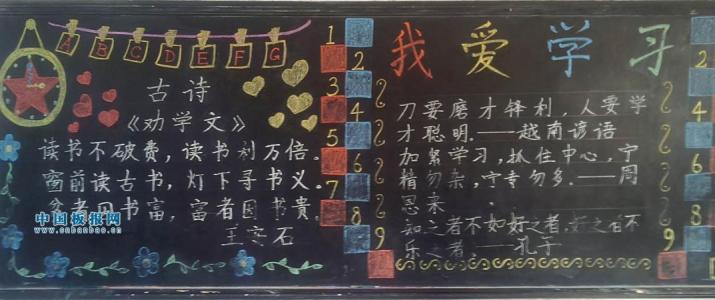 A B C D E F G
古诗
《劝学文》
读书不破费，读书利万倍。
窗前读古书，灯下寻书义。
贫者因书富，富者因书贵。
王安石
中国板报网
www.cnbanbao.cn
1
2
3
4
5
6
7
8
9
我爱学习
刀要磨才锋利，人要学
才聪明.——越南谚语
加紧学习，抓住中心，宁
精勿杂，宁专勿多.——周
恩来.
知之者不如好之者，好之者不
乐之者.——孔子
2
4
6
8
9